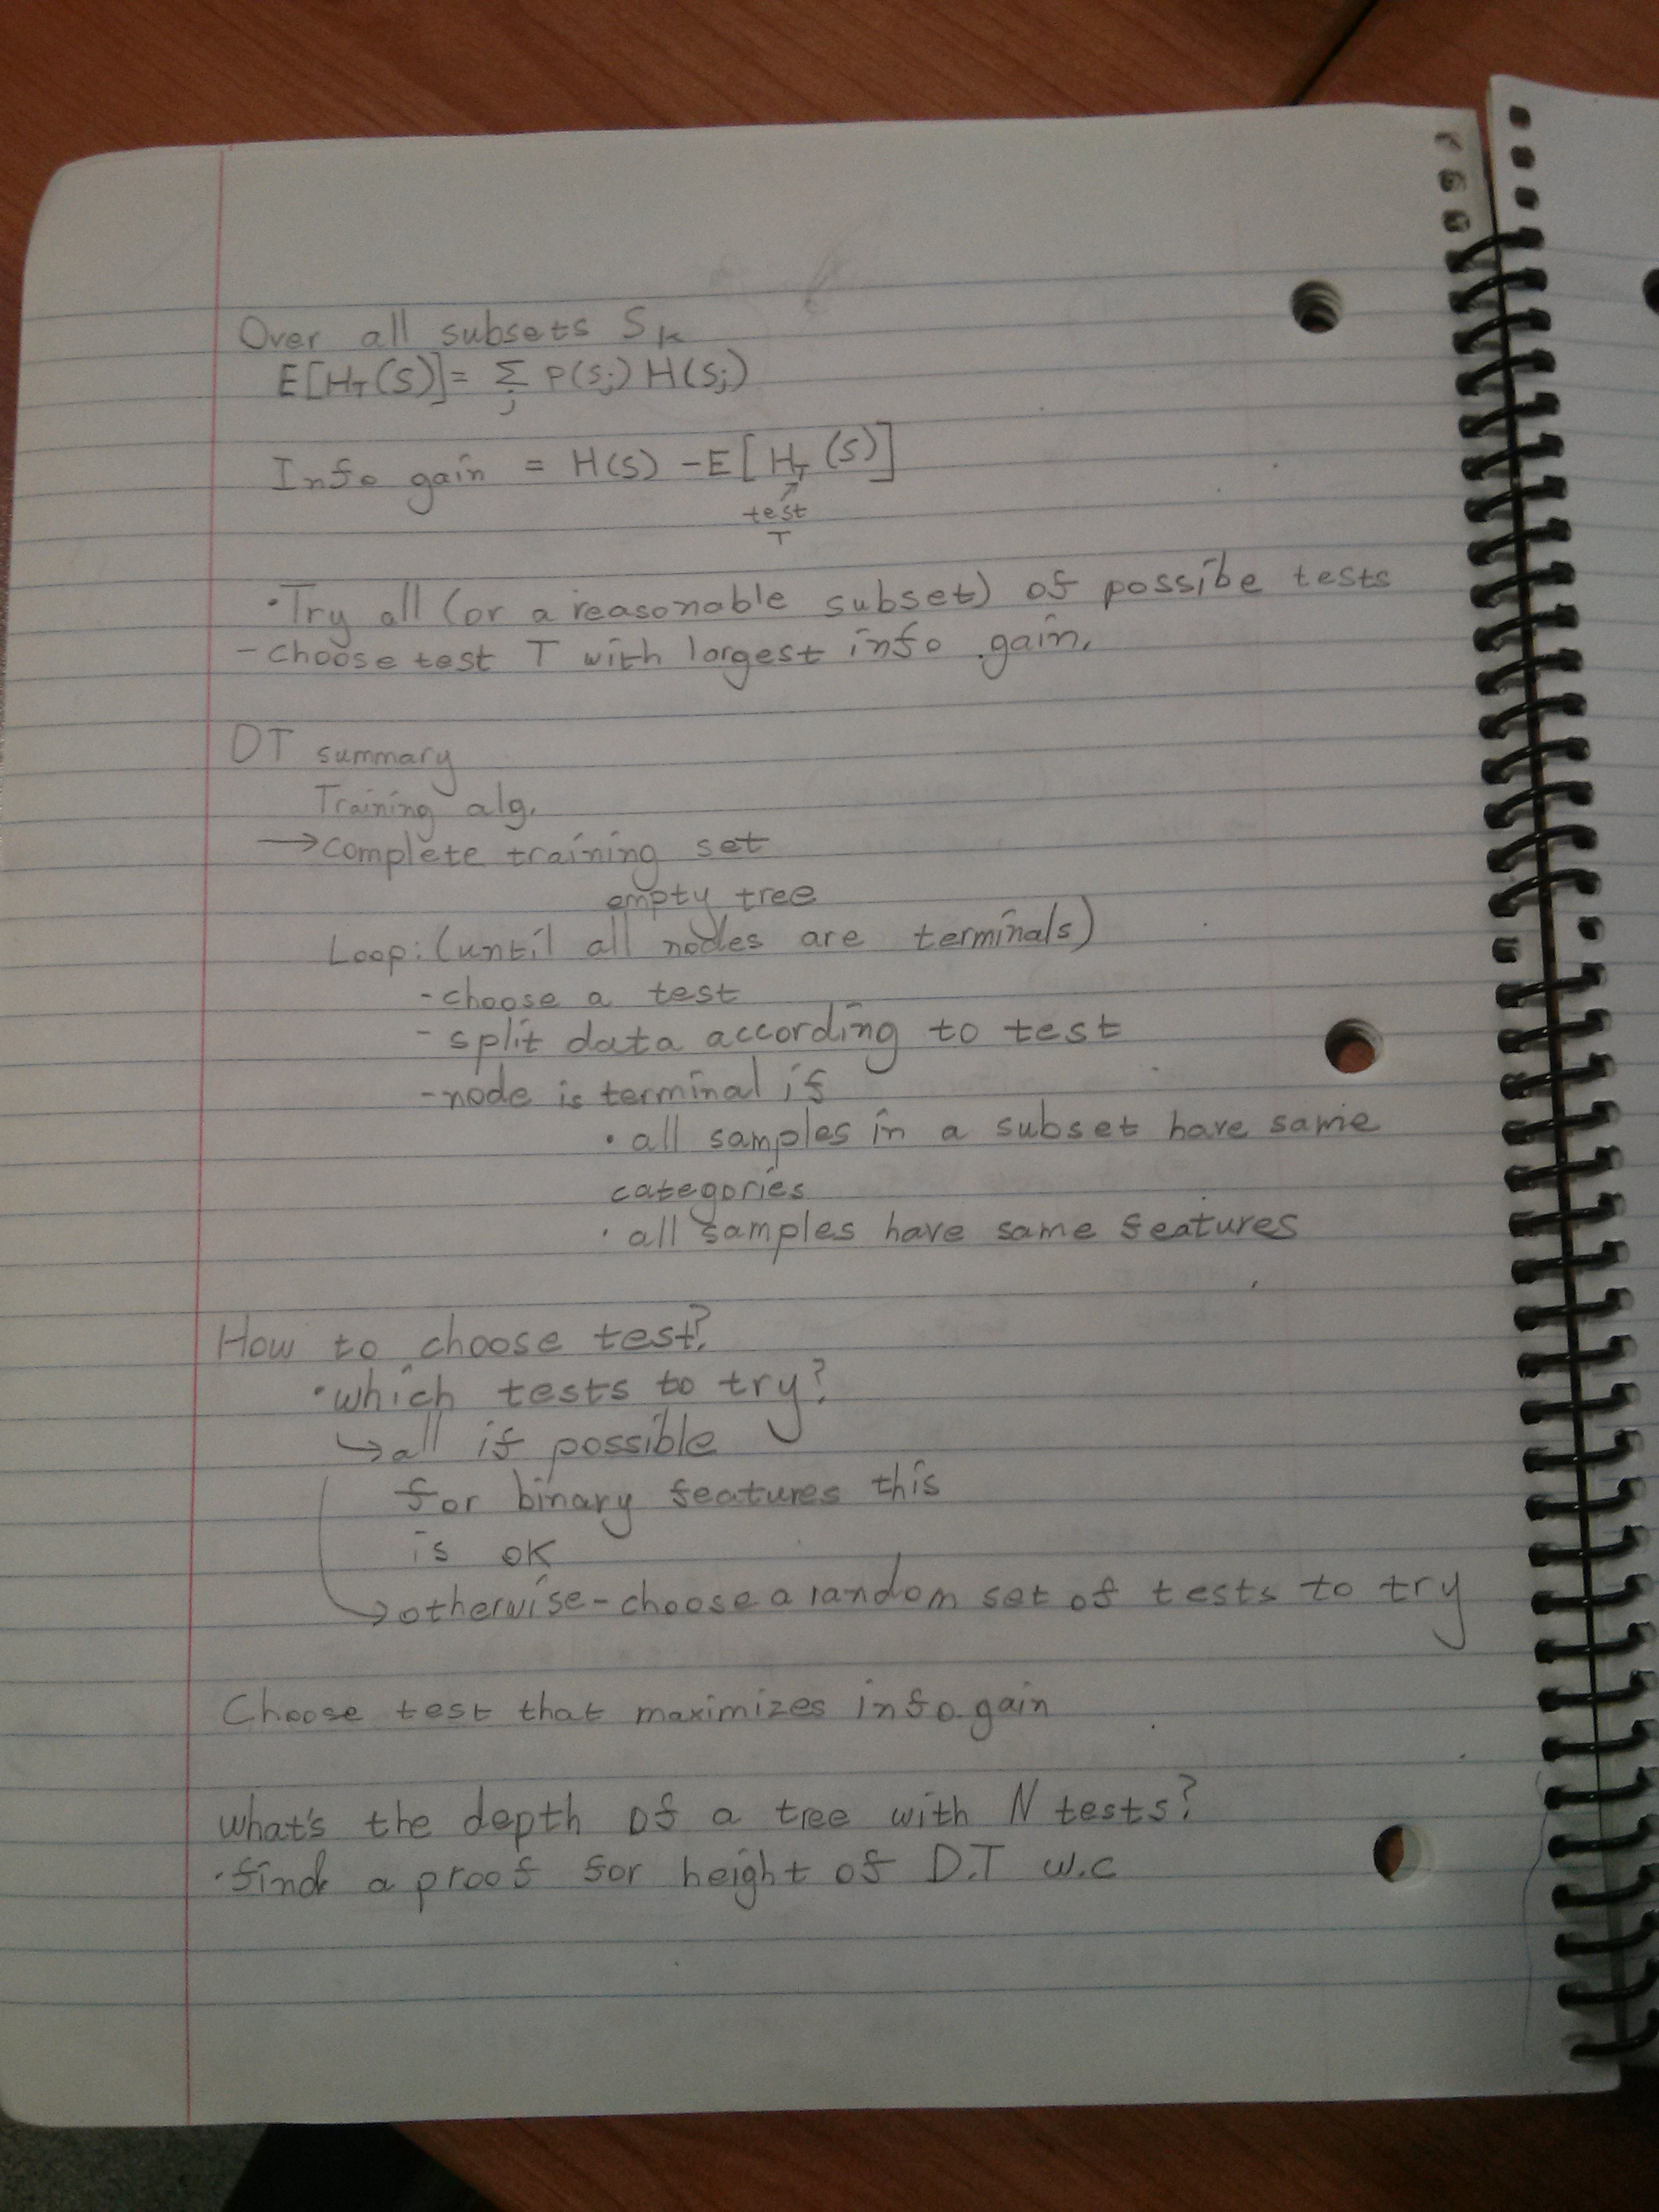 Over all subsets Sk
E[HT(S)] = Σ P(Sj) H(Sj)
j
Info gain = H(S) - E[HT(S)]
test
T
• Try all (or a reasonable subset) of possibe tests
- choose test T with largest info gain.
DT summary
Training alg.
→ complete training set
empty tree
Loop: (until all nodes are terminals)
- choose a test
- split data according to test
- node is terminal if
• all samples in a subset have same
categories
• all samples have same features
How to choose test?
• which tests to try?
↳ all if possible
for binary features this
is ok
↳ otherwise - choose a random set of tests to try
Choose test that maximizes info gain
what's the depth of a tree with N tests?
• find a proof for height of D.T w.c